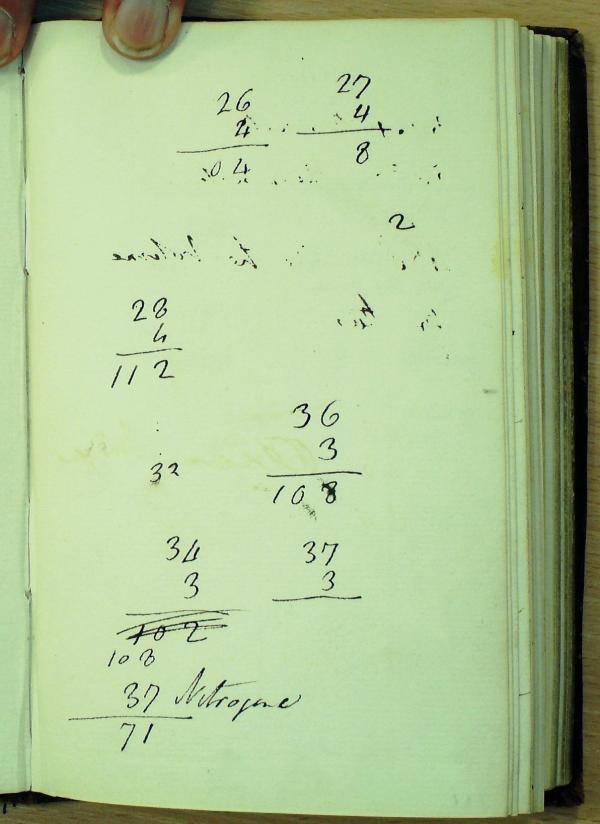 26 27
4 4
04 8
2
28
4
112
36
3
32
108
34 37
3 3
102
108
37 Nitrogene
71